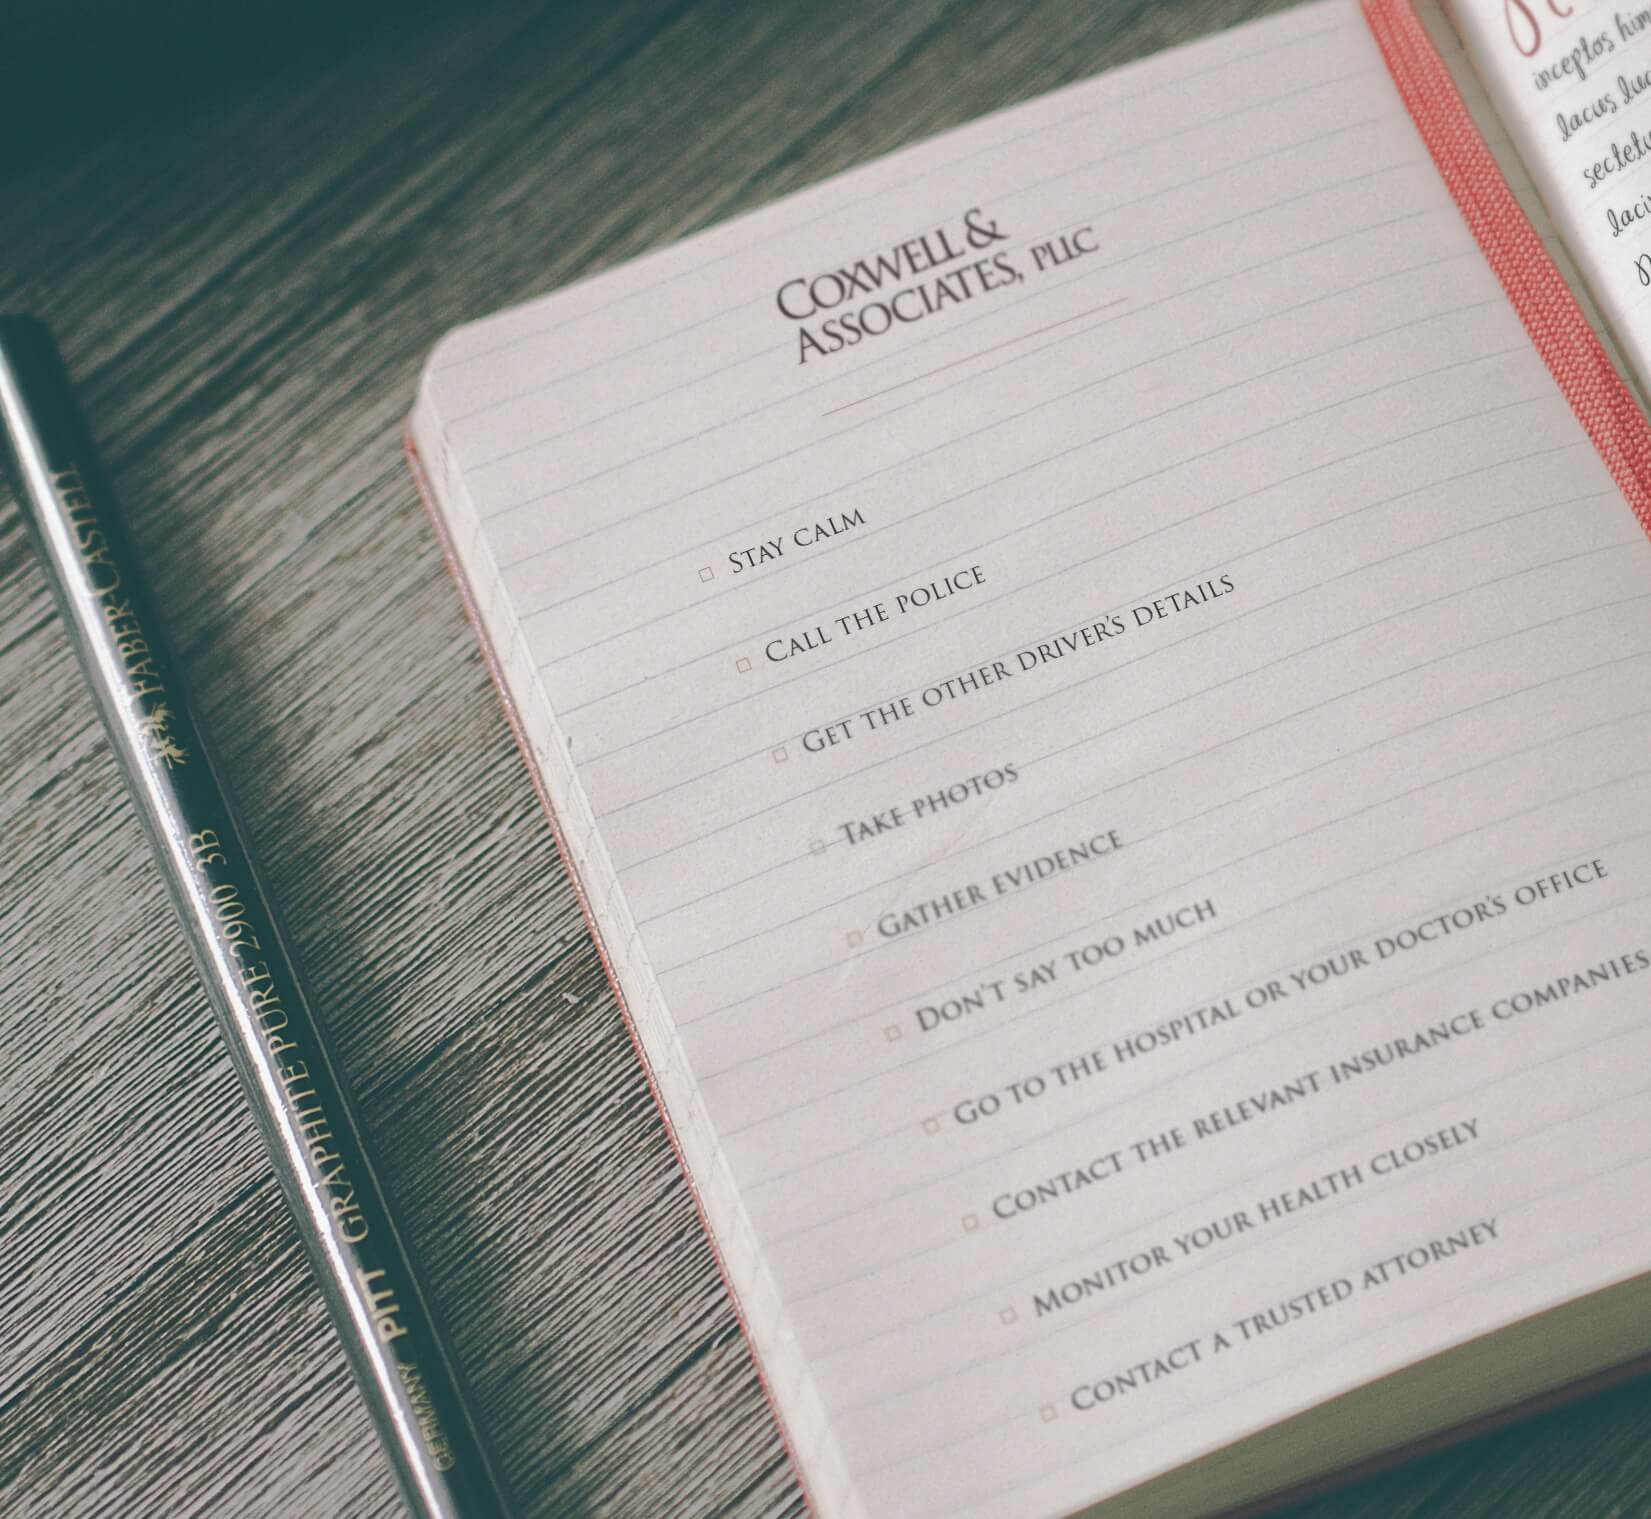 COXWELL &
ASSOCIATES, PLLC
STAY CALM
CALL THE POLICE
GET THE OTHER DRIVER'S DETAILS
TAKE PHOTOS
GATHER EVIDENCE
DON'T SAY TOO MUCH
GO TO THE HOSPITAL OR YOUR DOCTOR'S OFFICE
CONTACT THE RELEVANT INSURANCE COMPANIES
MONITOR YOUR HEALTH CLOSELY
CONTACT A TRUSTED ATTORNEY
inceptos
lacus
GERMANY PITT GRAPHITE PURE 2900 3B FABER CASTELL